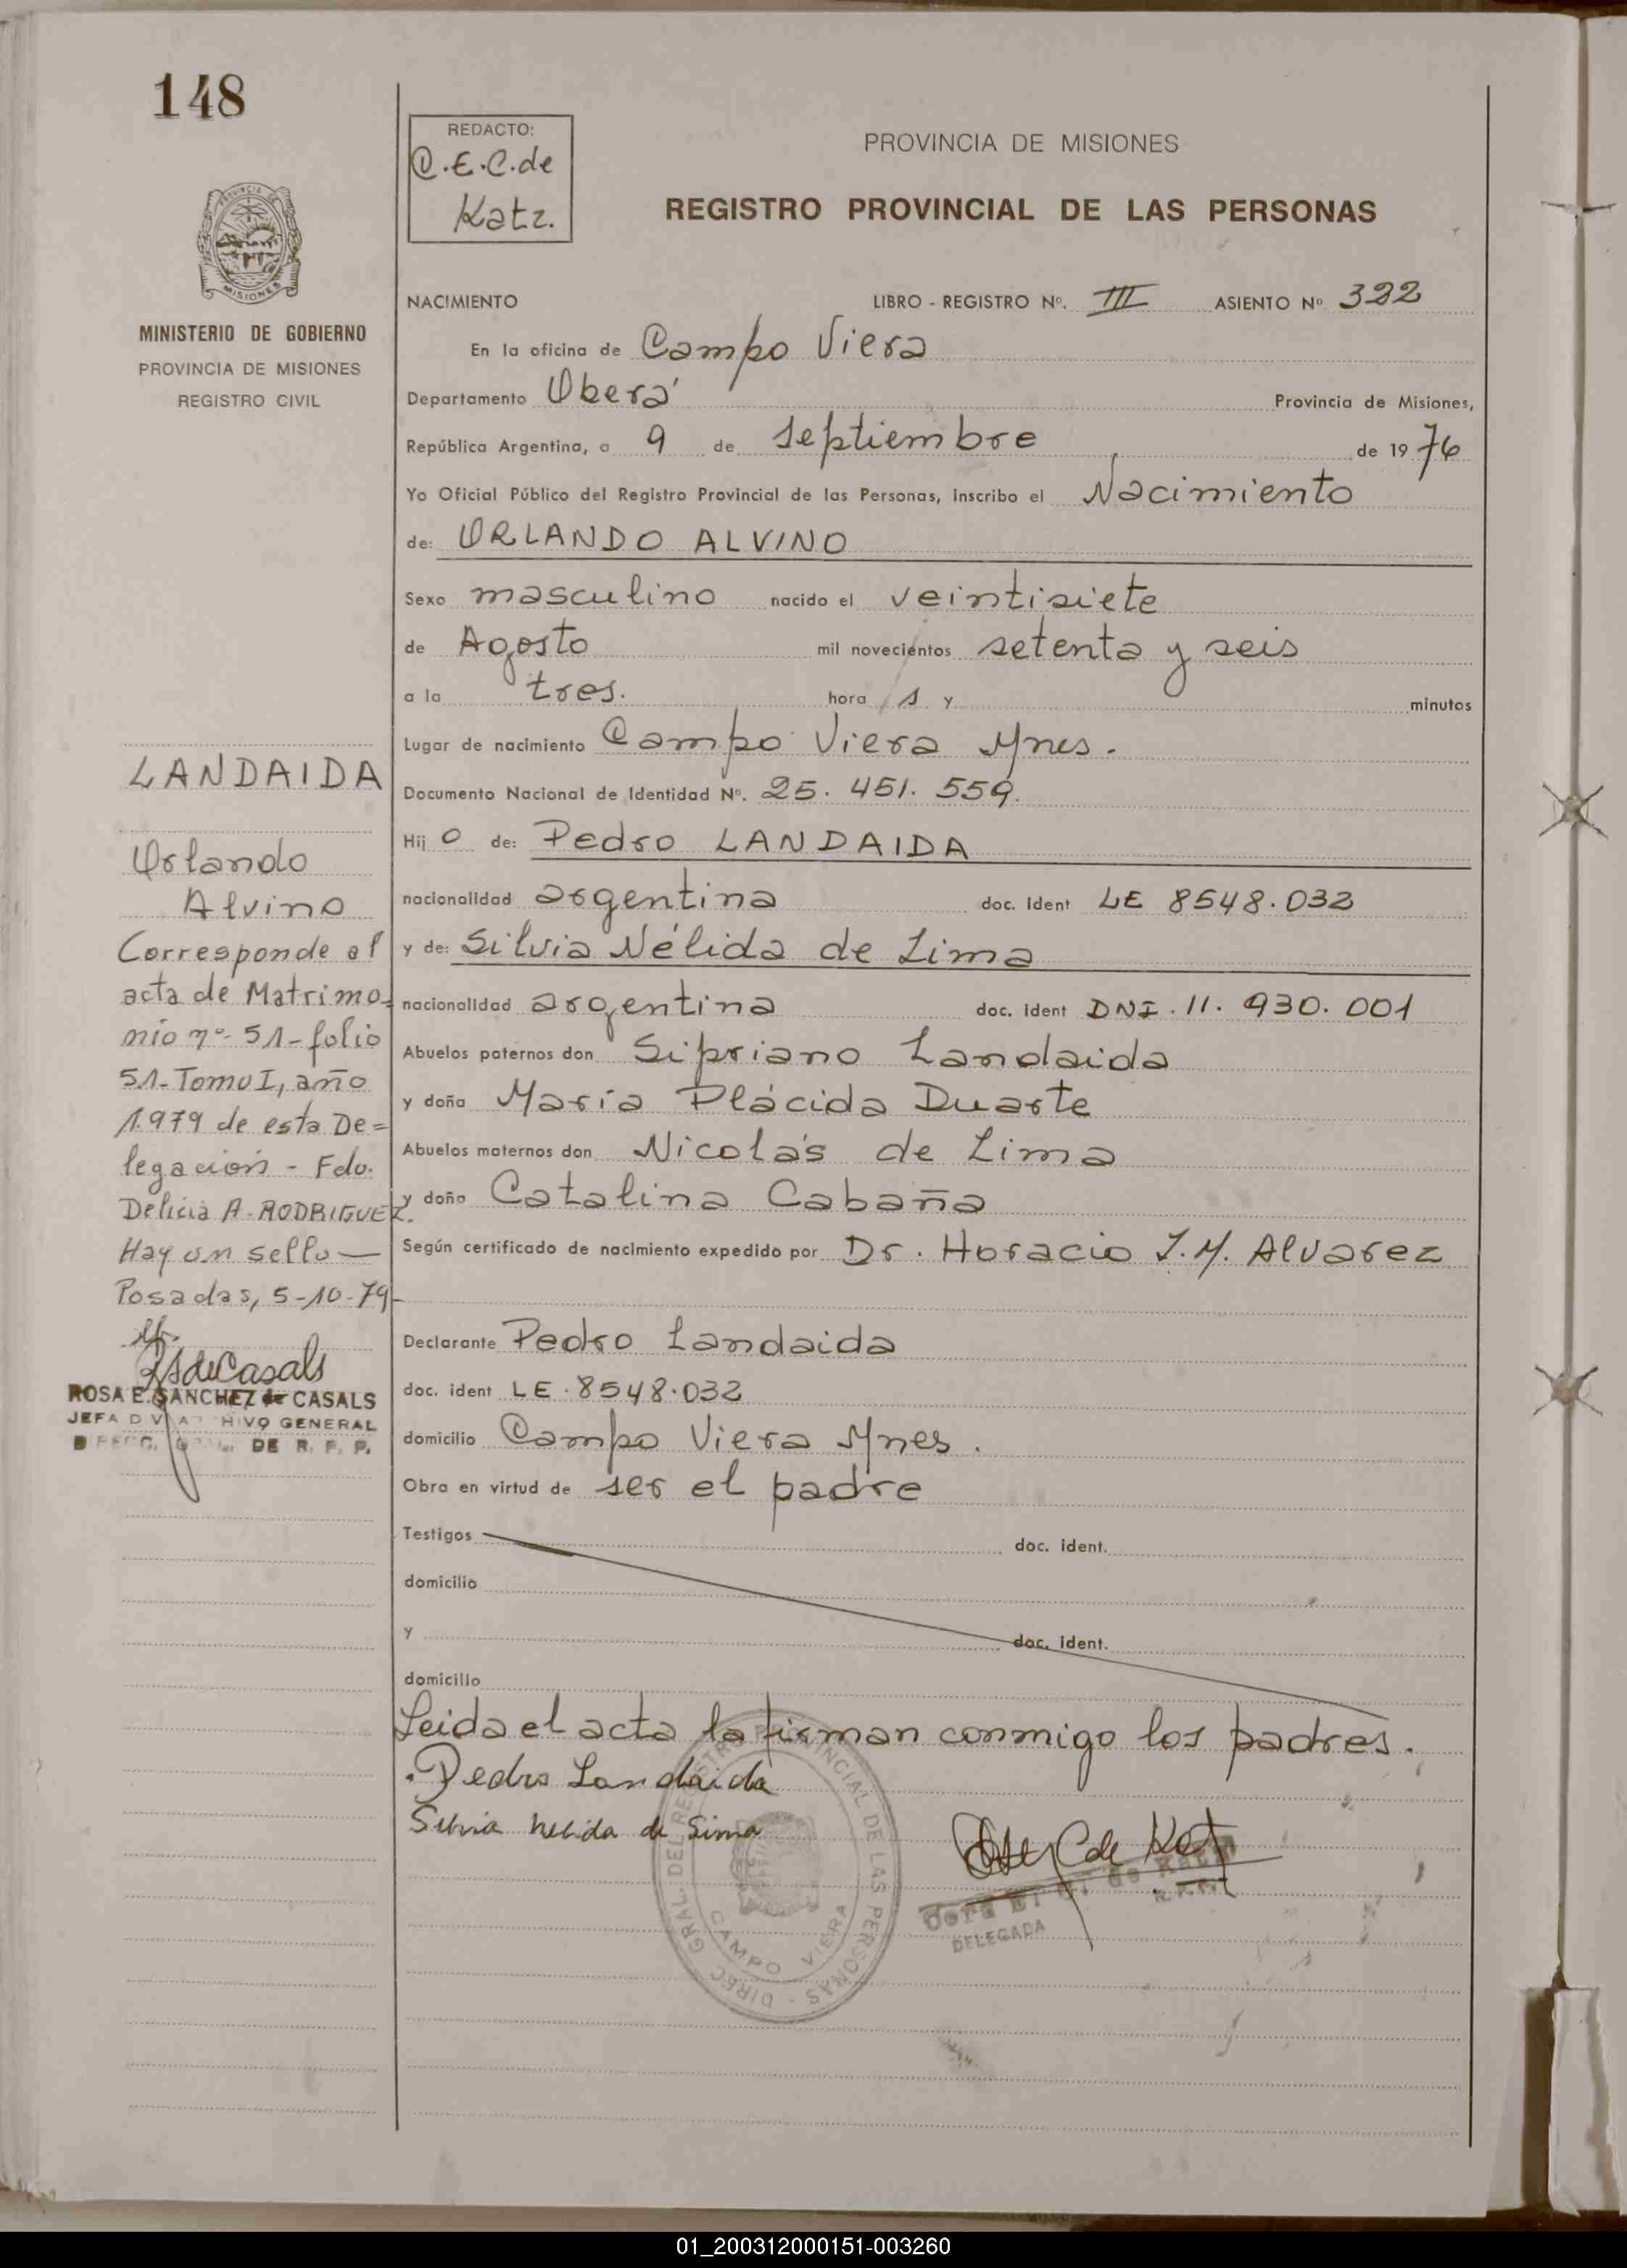 148
REDACTO:
C.E.C. de
Katz.
PROVINCIA DE MISIONES
REGISTRO PROVINCIAL DE LAS PERSONAS
PROVINCIA DE
MISIONES
MINISTERIO DE GOBIERNO
PROVINCIA DE MISIONES
REGISTRO CIVIL
NACIMIENTO LIBRO - REGISTRO Nº. III ASIENTO Nº 322
En la oficina de Campo Viera
Departamento Oberá Provincia de Misiones,
República Argentina, a 9 de septiembre de 1976
Yo Oficial Público del Registro Provincial de las Personas, inscribo el Nacimiento
de: ORLANDO ALVINO
Sexo masculino nacido el veintisiete
de Agosto mil novecientos setenta y seis
a la tres. hora s y minutos
Lugar de nacimiento Campo Viera Mnes.
Documento Nacional de Identidad Nº. 25.451.559.
Hij o de: Pedro LANDAIDA
nacionalidad argentina doc. ident LE 8548.032
y de: Silvia Nélida de Lima
nacionalidad argentina doc. ident DNI. 11.930.001
Abuelos paternos don Sipriano Landaida
y doña María Plácida Duarte
Abuelos maternos don Nicolás de Lima
y doña Catalina Cabaña
Según certificado de nacimiento expedido por Dr. Horacio J.M. Alvarez
Declarante Pedro Landaida
doc. ident LE.8548.032
domicilio Campo Viera Mnes.
Obra en virtud de ser el padre
Testigos doc. ident.
domicilio
y doc. ident.
domicilio
Leida el acta la firman conmigo los padres.
Pedro Landaida
Silvia nelida de Lima
DIREC. GRAL. DEL REGISTRO PROVINCIAL DE LAS PERSONAS -
CAMPO VIERA
de Katz
DELEGADA
LANDAIDA
Orlando
Alvino
Corresponde al
acta de Matrimo-
nio nº 51- folio
51- Tomo I, año
1.979 de esta De=
legación - Fdo.
Delicia A. RODRIGUEZ.
Hay un sello—
Posadas, 5-10-79-
RSdeCasals
ROSA E. SANCHEZ de CASALS
JEFA DIV ARCHIVO GENERAL
DE R. P. P.
01_200312000151-003260